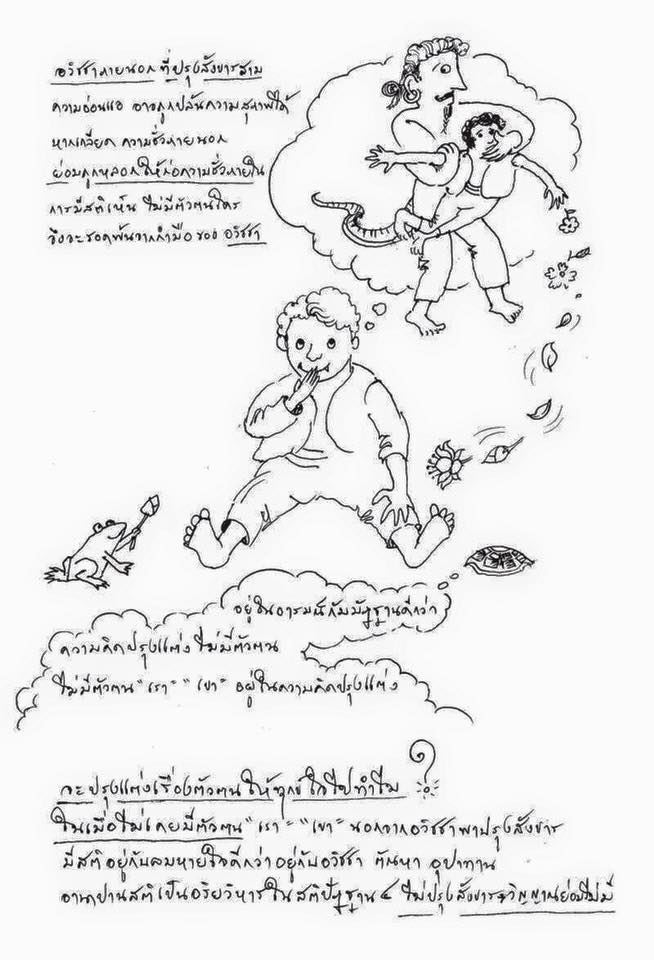 อวิชชาภายนอกที่ปรุงสังขารสาม
ความอ่อนแอ อาจถูกปล้นความสุภาพได้
หากเกลียด ความชั่วภายนอก
ย่อมถูกหลอกให้ก่อความชั่วภายใน
การมีสติเห็น ไม่มีตัวตนใคร
จึงจะรอดพ้นจากกำมือของ อวิชชา
อยู่ในอารมณ์กัมมัฏฐานดีกว่า
ความคิดปรุงแต่งไม่มีตัวตน
ไม่มีตัวตน "เรา" "เขา" อยู่ในความคิดปรุงแต่ง
จะปรุงแต่งเรื่องตัวตนให้ทุกข์ใจไปทำไม
ในเมื่อไม่เคยมีตัวตน "เรา" "เขา" นอกจากอวิชชาพาปรุงสังขาร
มีสติอยู่กับลมหายใจดีกว่าอยู่กับอวิชชา ตัณหา อุปาทาน
อานาปานสติเป็นอริยวิหารในสติปัฏฐาน ๔ ไม่ปรุงสังขารวิญญาณย่อมไม่มี